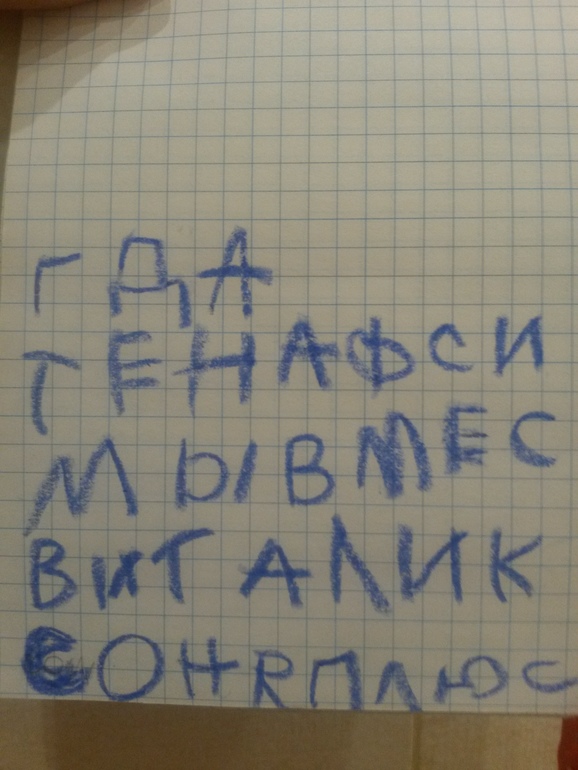 ГДА
ТЕНАФСИ
МЫВМЕС
ВИТАЛИК
СОНЯПЛЮС